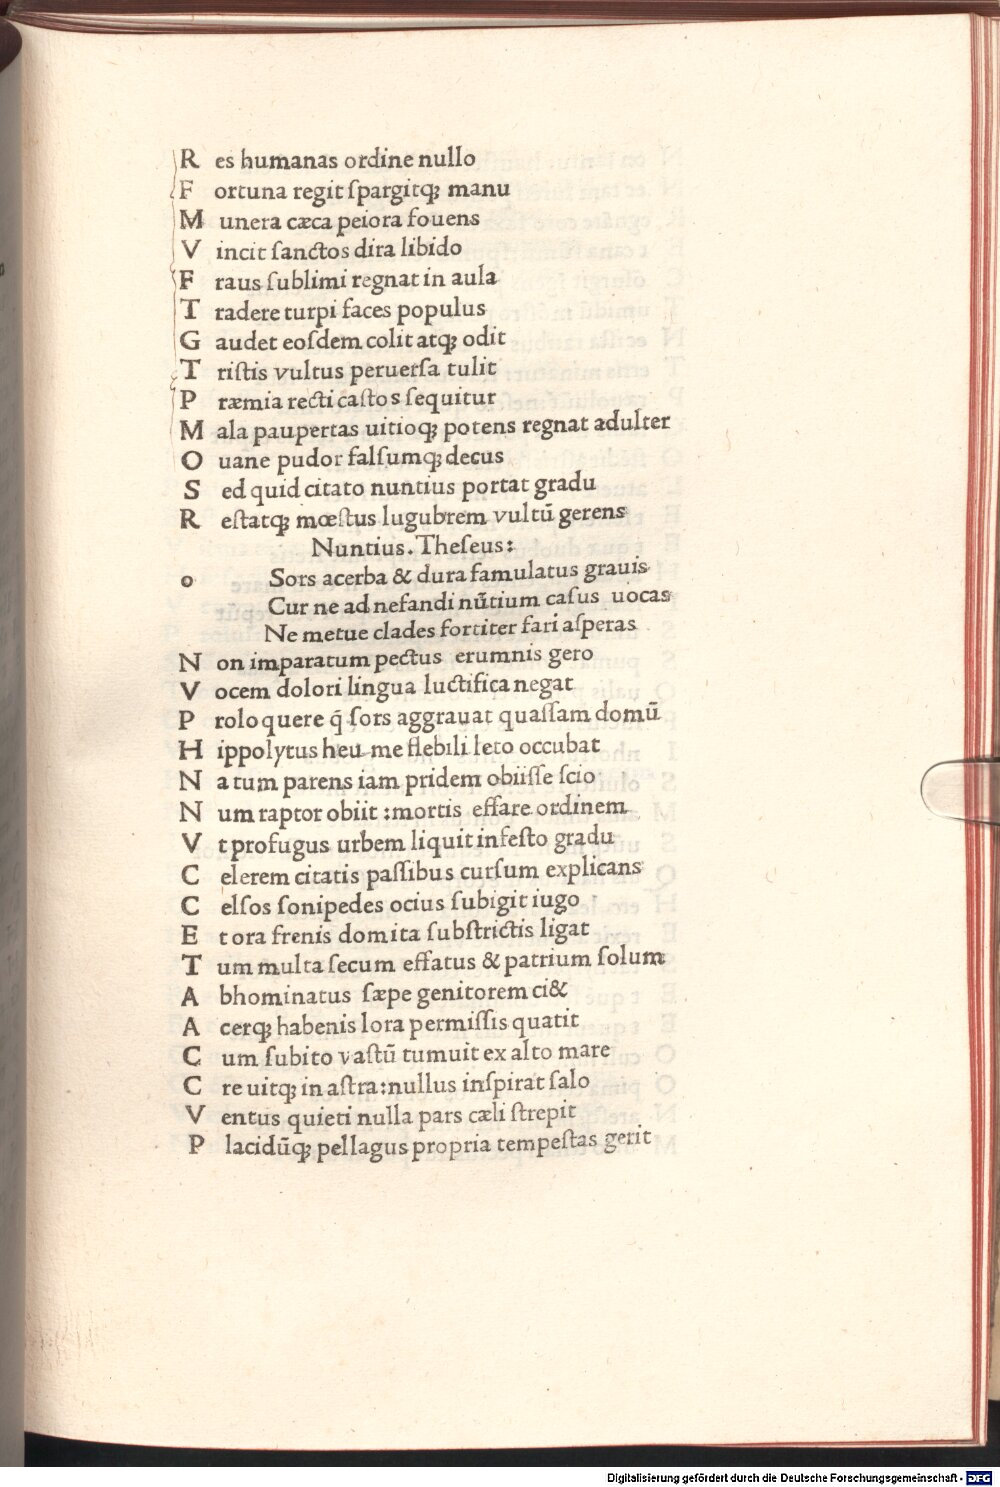 R es humanas ordine nullo
F ortuna regit ſpargitqꝫ manu
M unera cæca peiora fouens
V incit ſanctos dira libido
F raus ſublimi regnat in aula
T radere turpi faces populus
G audet eoſdem colit atqꝫ odit
T riſtis vultus peruerſa tulit
P ræmia recti caſtos ſequitur
M ala paupertas uitioqꝫ potens regnat adulter
O uane pudor falſumqꝫ decus
S ed quid citato nuntius portat gradu
R eſtatqꝫ mœſtus lugubrem vultū gerens
Nuntius. Theſeus:
o Sors acerba & dura famulatus grauis
Cur ne ad nefandi nūtium caſus uocas
Ne metue clades fortiter fari aſperas
N on imparatum pectus erumnis gero
V ocem dolori lingua luctifica negat
P roloquere q̄ ſors aggrauat quaſſam domū
H ippolytus heu me flebili leto occubat
N a tum parens iam pridem obiiſſe ſcio
N um raptor obiit : mortis effare ordinem
V t profugus urbem liquit infeſto gradu
C elerem citatis paſſibus curſum explicans
C elſos ſonipedes ocius ſubigit iugo
E t ora frenis domita ſubſtrictis ligat
T um multa ſecum effatus & patrium ſolum
A bhominatus ſæpe genitorem ci&
A cerqꝫ habenis lora permiſſis quatit
C um ſubito vaſtū tumuit ex alto mare
C re uitqꝫ in aſtra: nullus inſpirat ſalo
V entus quieti nulla pars cæli ſtrepit
P lacidūqꝫ pellagus propria tempeſtas gerit
Digitalisierung gefördert durch die Deutsche Forschungsgemeinschaft - DFG